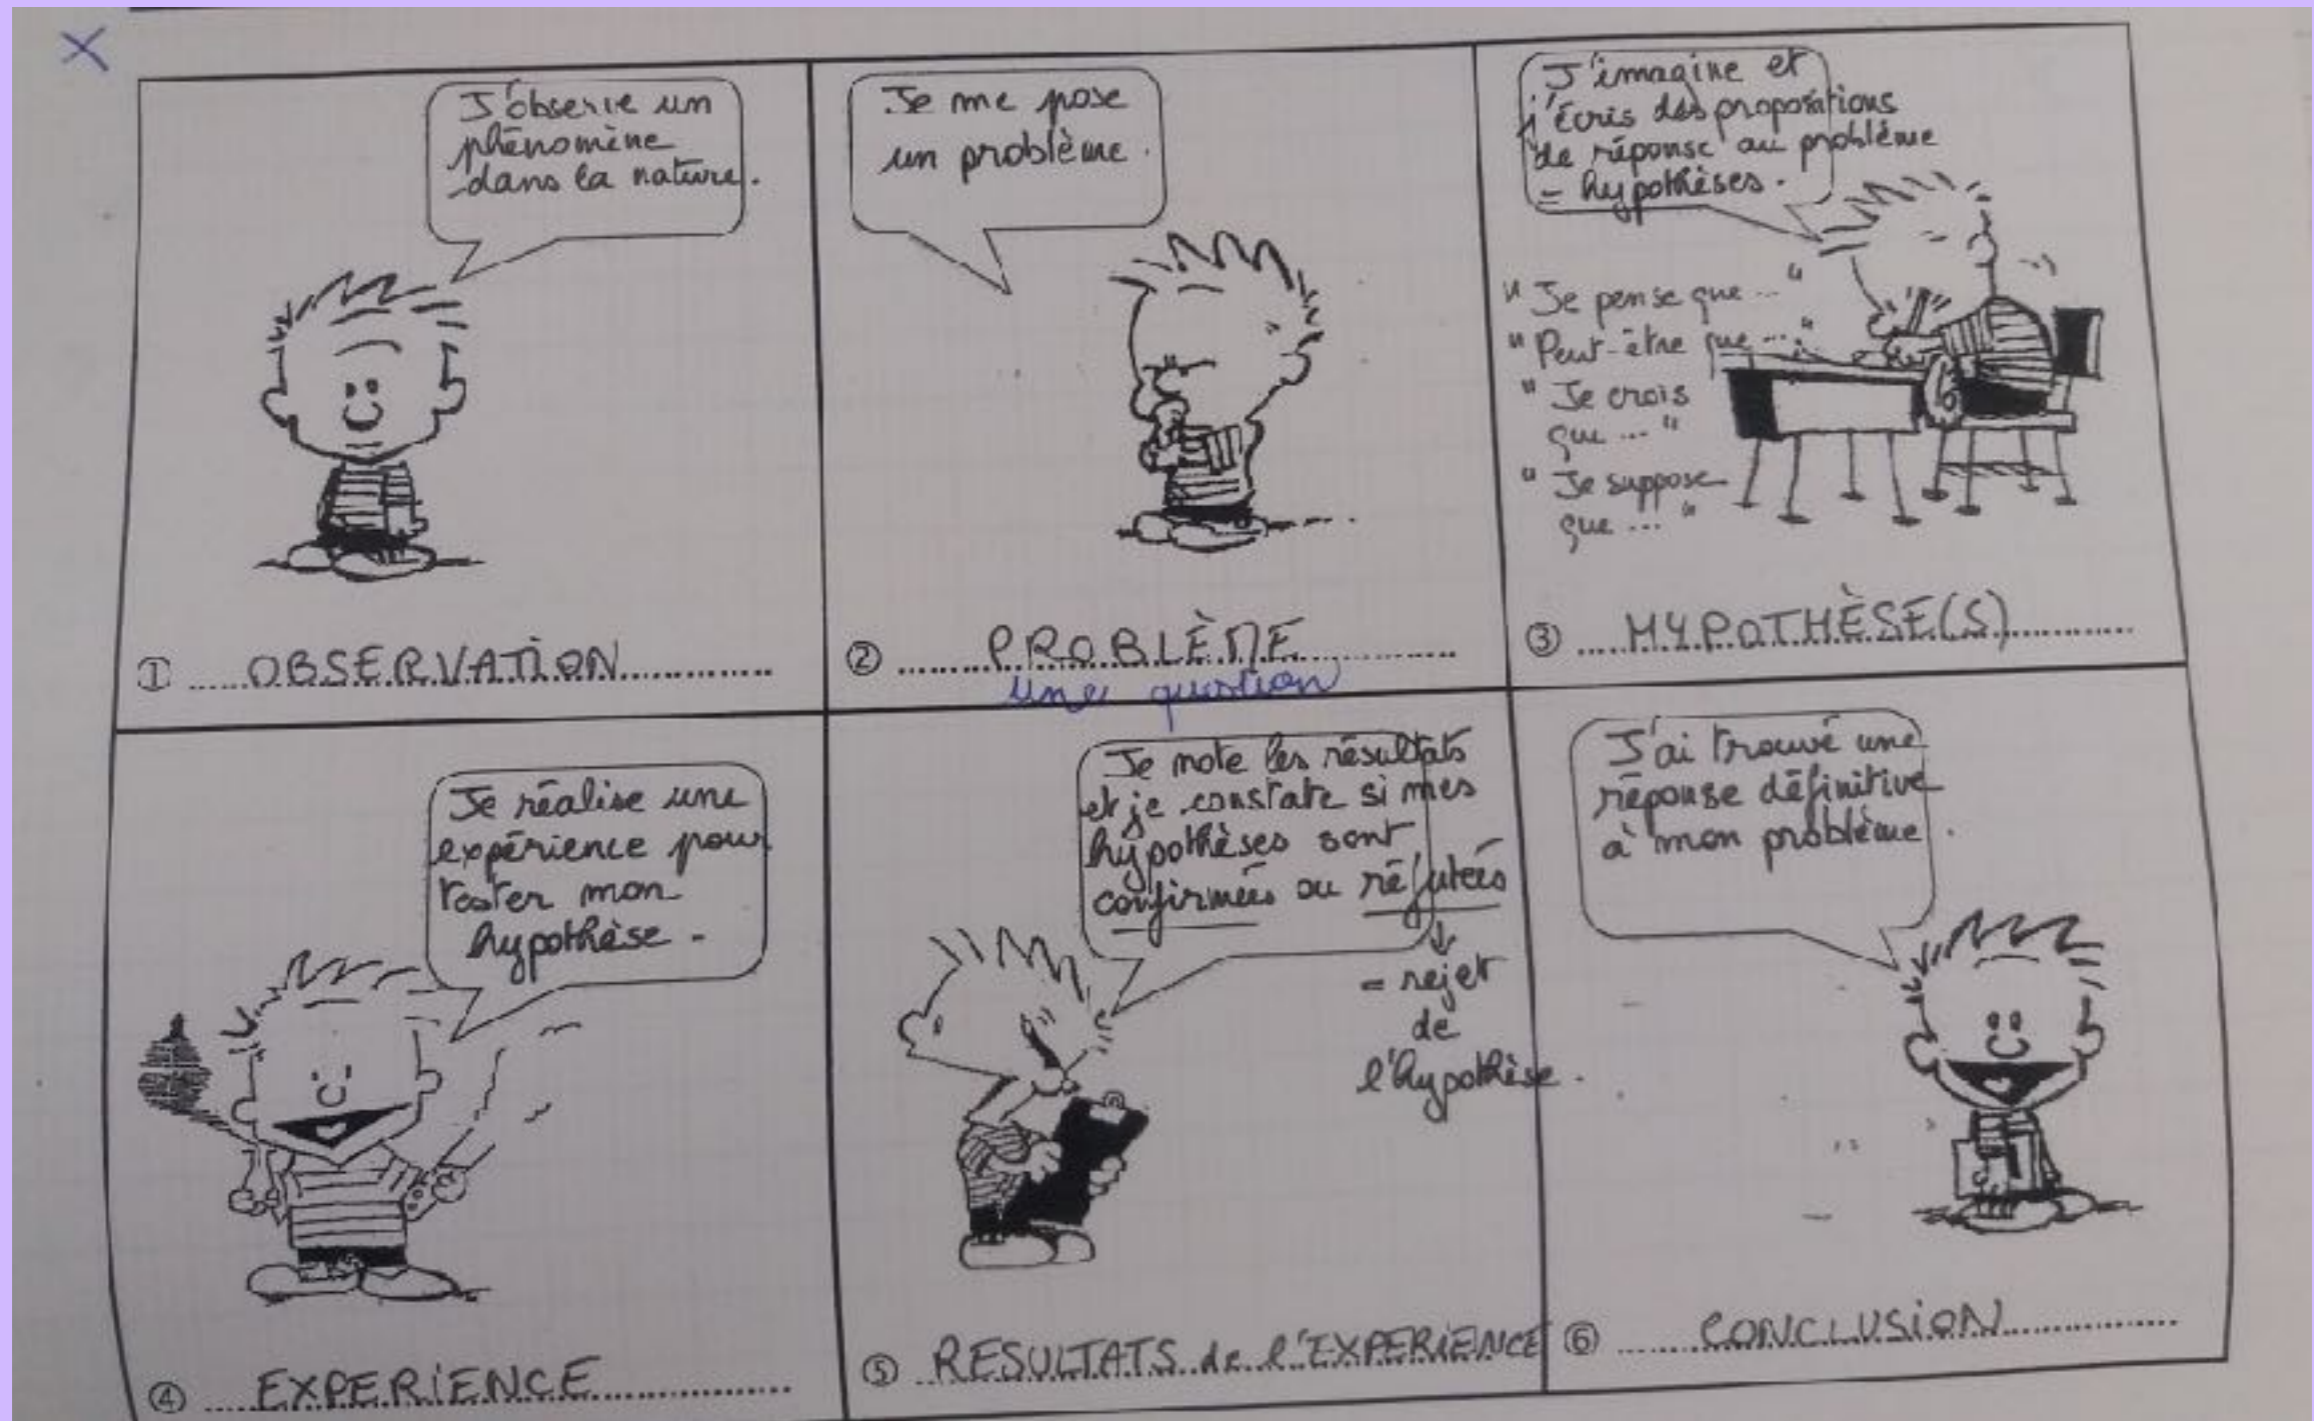 X
J'observe un
phénomène
dans la nature.
① OBSERVATION
Je me pose
un problème.
② PROBLÈME
une question
J'imagine et
j'écris des propositions
de réponse au problème
= hypothèses.
"Je pense que ..."
"Peut-être que ..."
"Je crois
que ..."
"Je suppose
que ..."
③ HYPOTHÈSE(S)
Je réalise une
expérience pour
tester mon
hypothèse.
④ EXPERIENCE
Je note les résultats
et je constate si mes
hypothèses sont
confirmées ou réfutées
↓
= rejet
de
l'hypothèse.
⑤ RESULTATS de l'EXPERIENCE
J'ai trouvé une
réponse définitive
à mon problème.
⑥ CONCLUSION